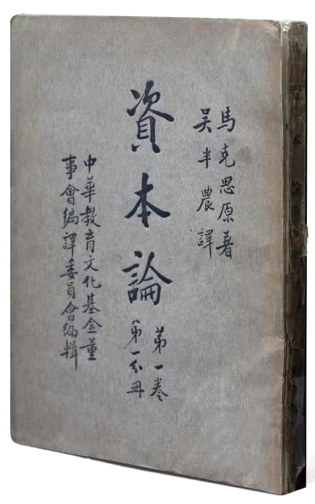 馬克思原著
吳半農譯
資本論
第一卷
第一分冊
中華教育文化基金董
事會編譯委員會編輯